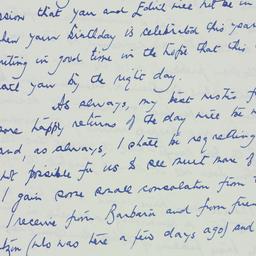 that you and Edith will not be in
when your birthday is celebrated this year
writing in good time in the hope that this
you by the right day.
As always, my best wishes f
more happy returns of the day will be
and, as always, I shall be regretting
not possible for us to see much more of
I gain some small consolation from
I receive from Barbara and from
(who was here a few days ago) and